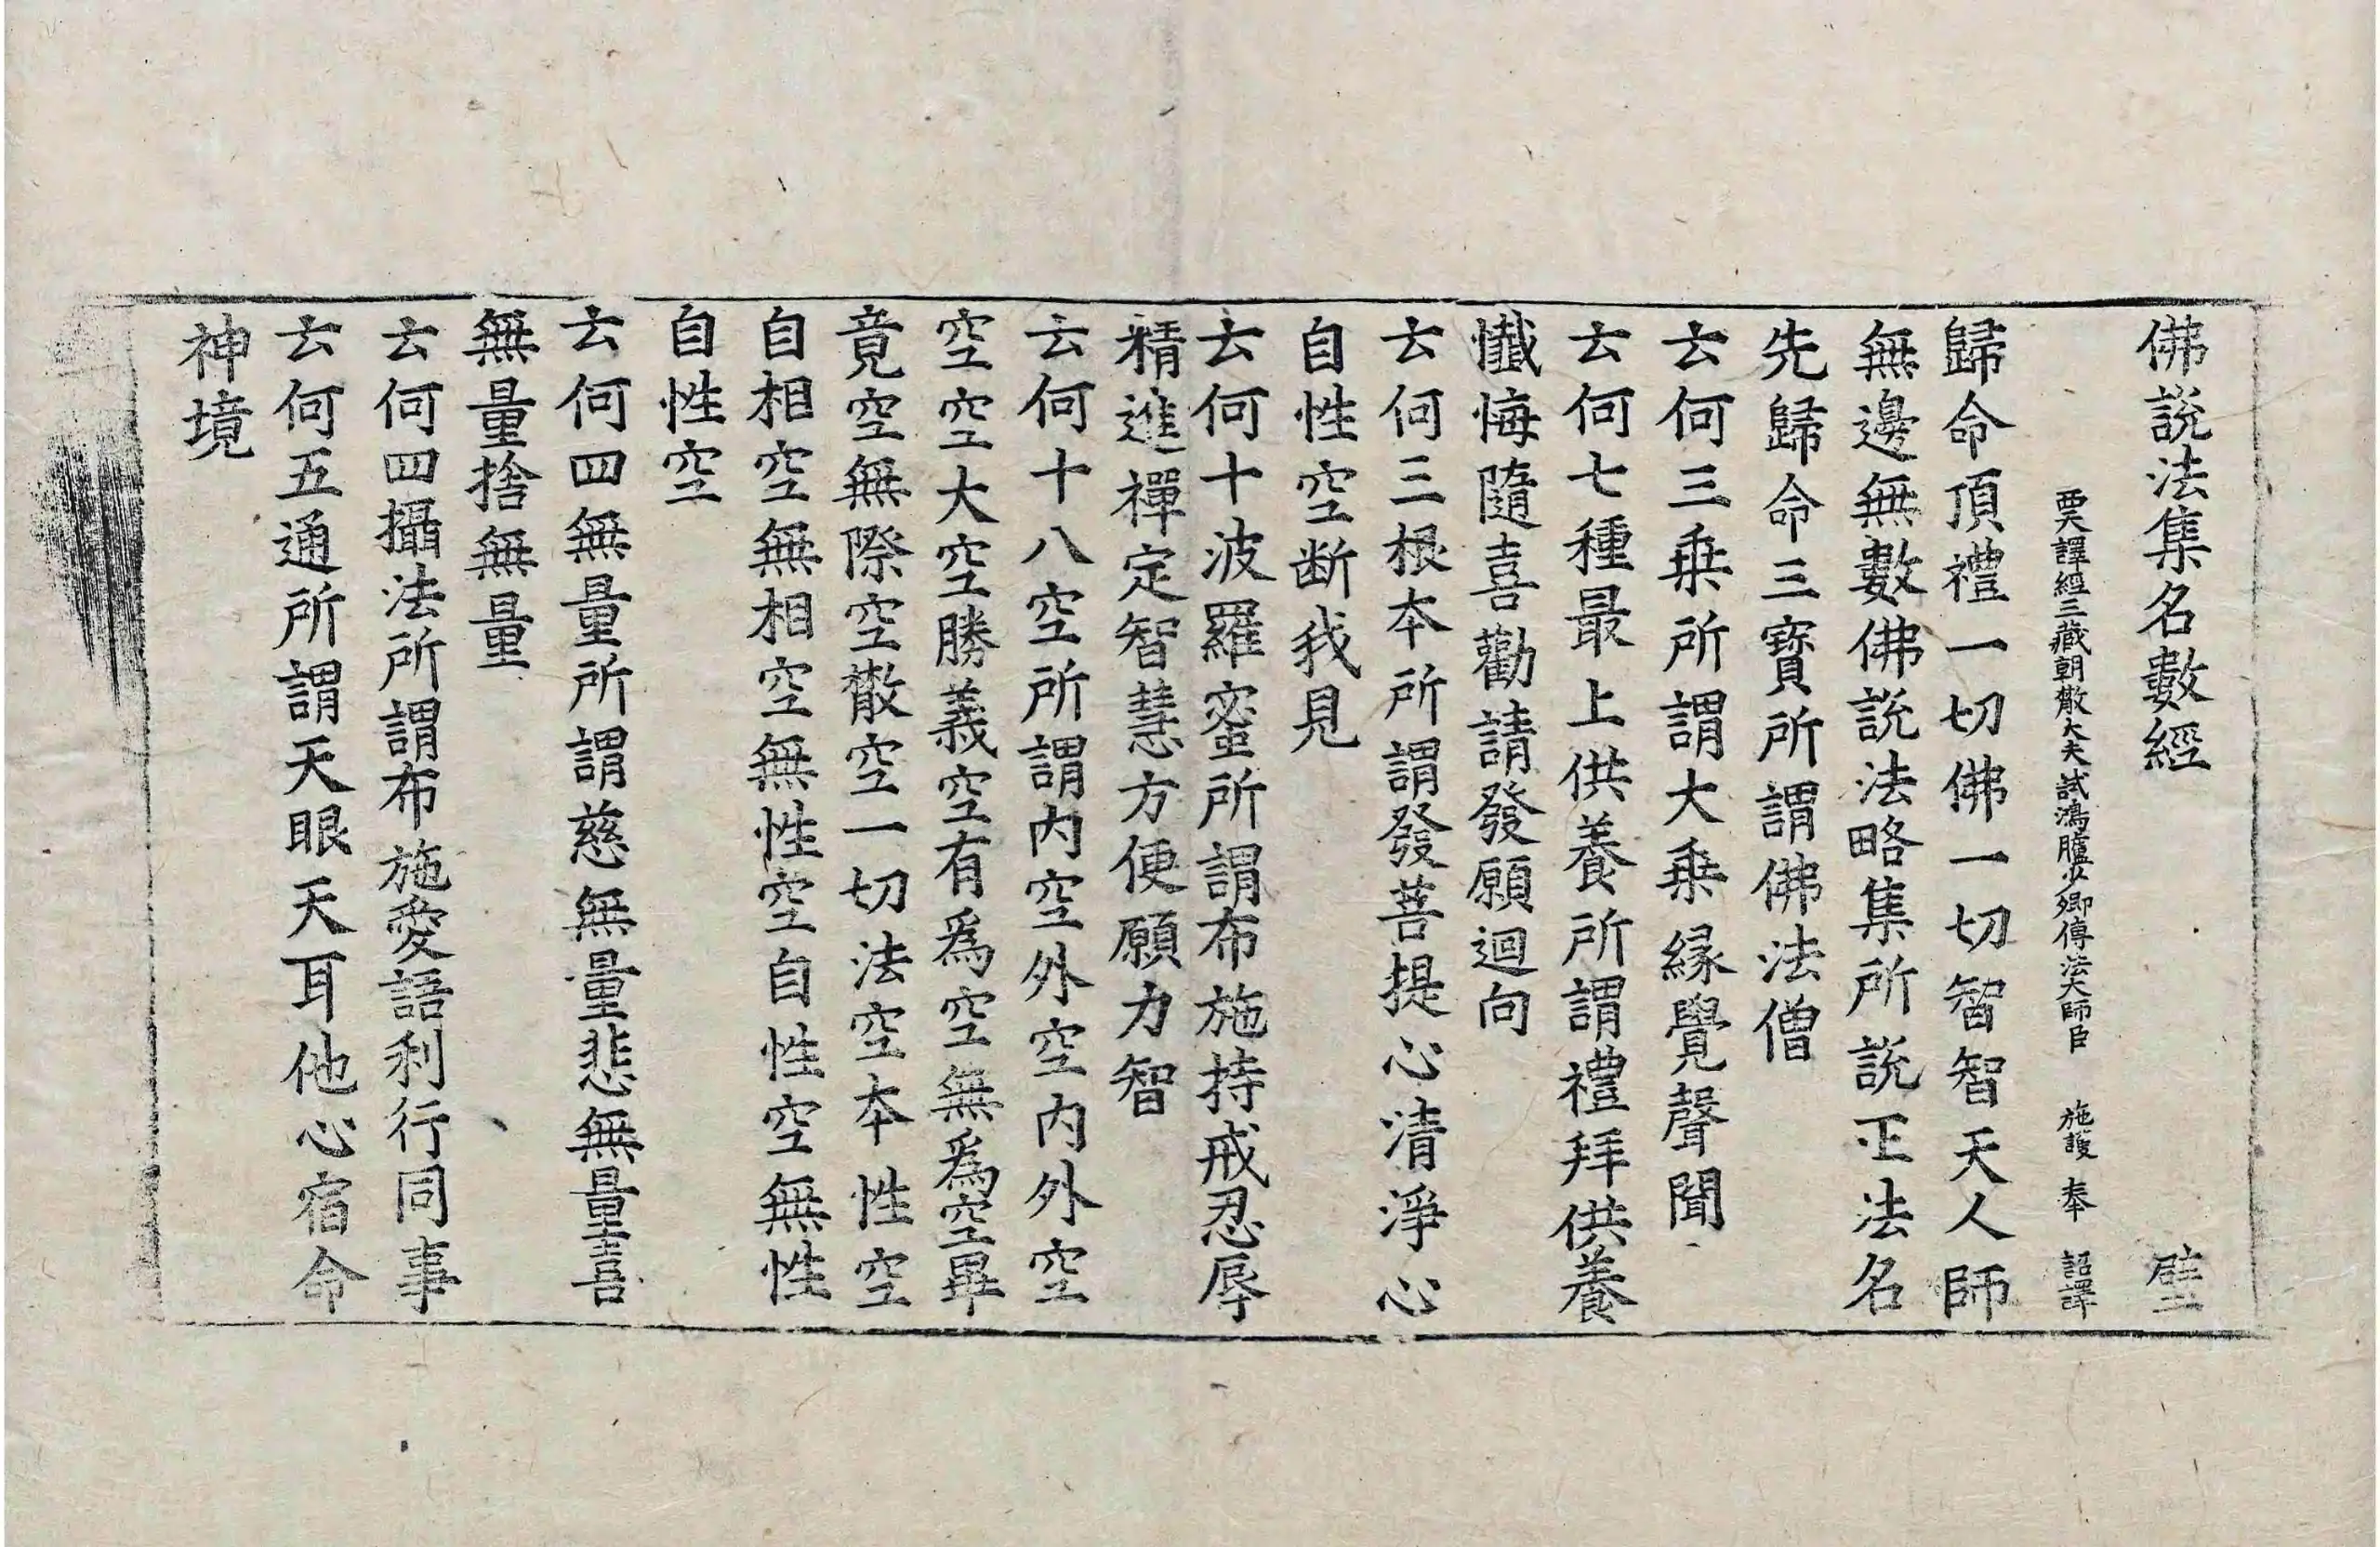 佛説法集名數經 璧
西天譯經三藏朝散大夫試鴻臚少卿傳法大師臣 施護 奉 詔譯
歸命頂禮一切佛一切智智天人師
無邊無數佛説法略集所説正法名
先歸命三寶所謂佛法僧
云何三乗所謂大乗緣覺聲聞
云何七種最上供養所謂禮拜供養
懺悔隨喜勸請發願迴向
云何三根本所謂發菩提心清淨心
自性空断我見
云何十波羅蜜所謂布施持戒忍辱
精進禪定智慧方便願力智
云何十八空所謂内空外空内外空
空空大空勝義空有爲空無爲空畢
竟空無際空散空一切法空本性空
自相空無相空無性空自性空無性
自性空
云何四無量所謂慈無量悲無量喜
無量捨無量
云何四攝法所謂布施愛語利行同事
云何五通所謂天眼天耳他心宿命
神境